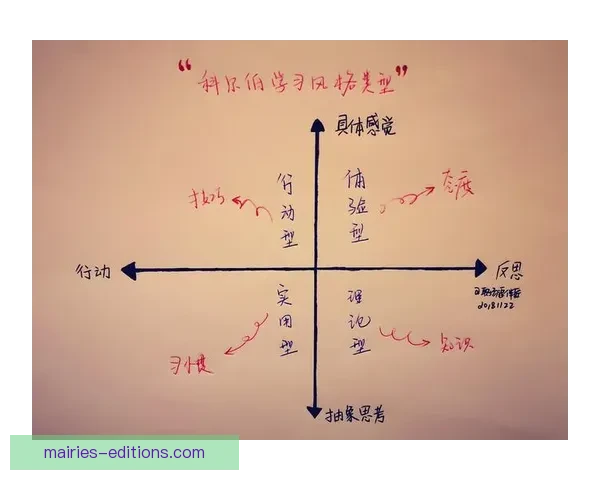 “科尔伯学习风格类型”
具体感觉
行动型
体验型
技巧
态度
行动
反思
20181122
实用型
理论型
习惯
知识
抽象思考
mairies-editions.com